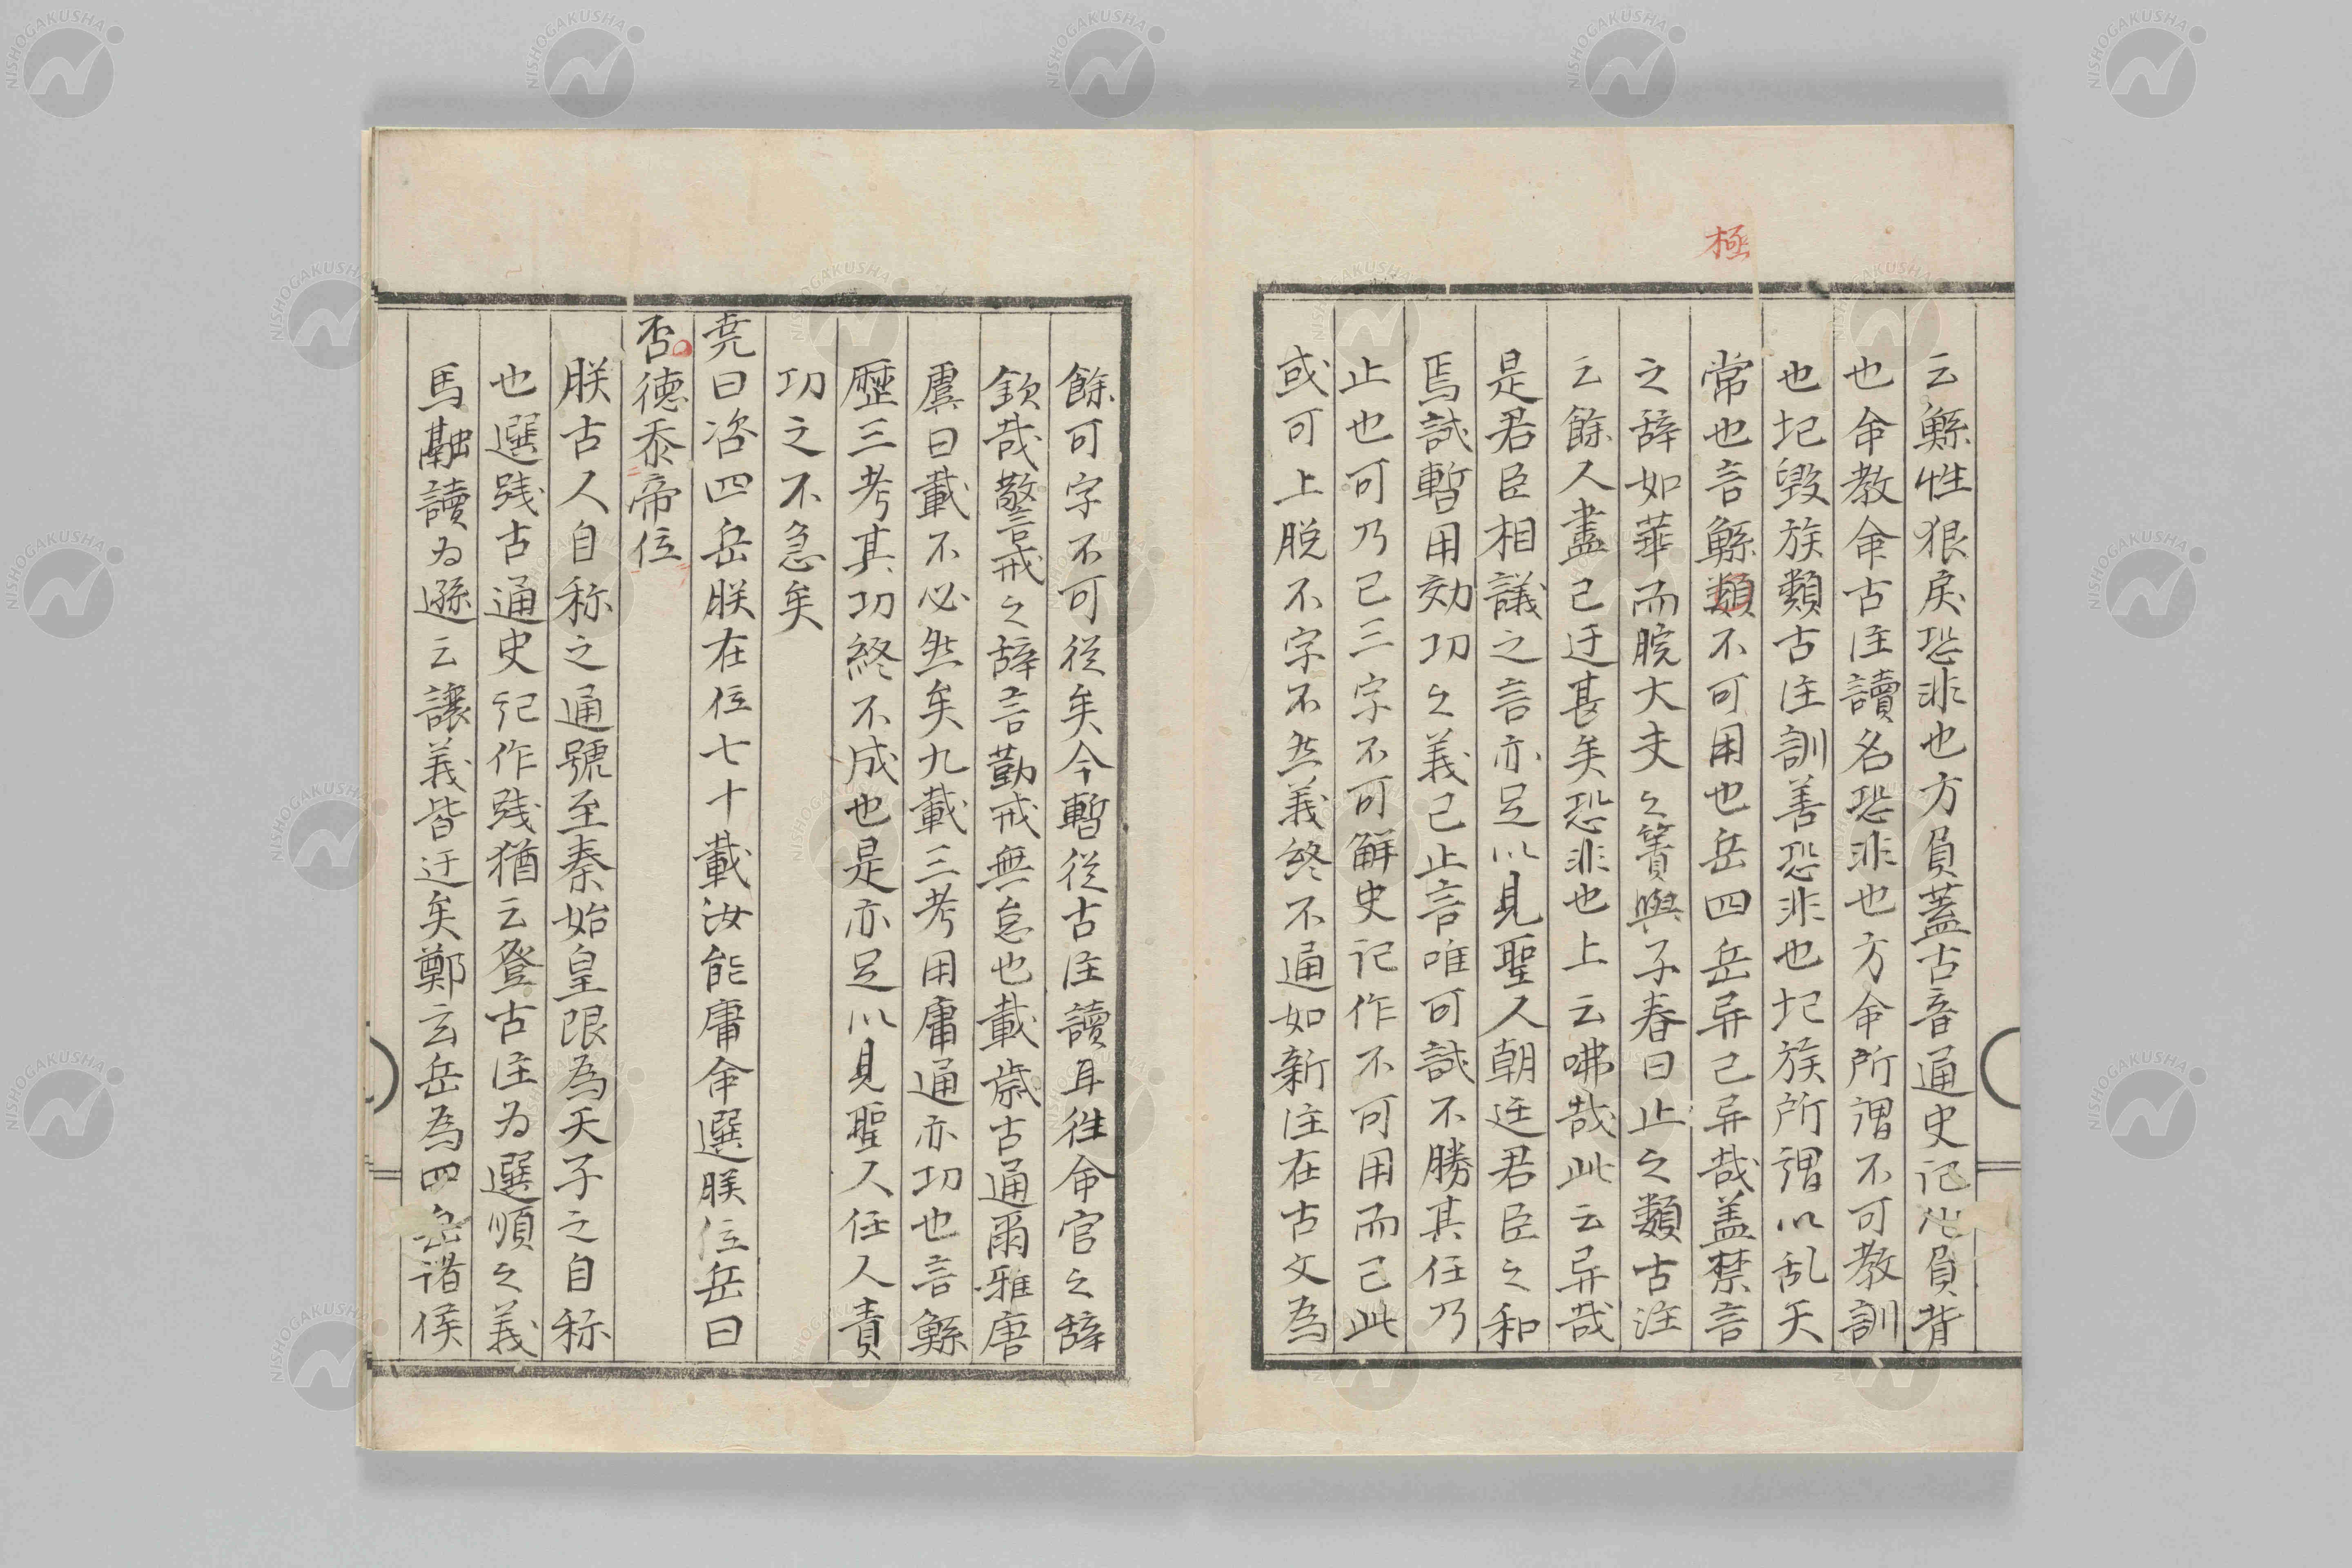 極
云鯀性狠戾恐非也方負蓋古音通史記作負背
也命教命古注讀名恐非也方命所謂不可教訓
也圮毀族類古注訓善恐非也圮族所謂以乱天
常也言鯀類不可用也岳四岳异已异哉盖禁言
之辞如華而睆大夫之簀與子春曰止之類古注
云餘人盡已迂甚矣恐非也上云咈哉此云异哉
是君臣相議之言亦足以見聖人朝廷君臣之和
焉試暫用効功之義已止言唯可試不勝其任乃
止也可乃已三字不可解史記作不可用而已此
或可上脱不字不然義終不通如新注在古文為
餘可字不可從矣今暫從古注讀耳往命官之辞
欽哉警戒之辞言勤戒無怠也載歳古通爾雅唐
虞曰載不必然矣九載三考用庸通亦功也言鯀
歷三考其功終不成也是亦足以見聖人任人責
功之不急矣
尭曰咨四岳朕在位七十載汝能庸命選朕位岳曰
否德忝帝位
朕古人自称之通號至秦始皇限為天子之自称
也選践古通史記作践猶云登古注为選順之義
馬融讀为遜云讓義皆迂矣鄭云岳為四岳诸侯
NISHOGAKUSHA